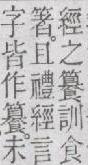 經之籑訓食
箸。且禮經言
字皆作籑。未